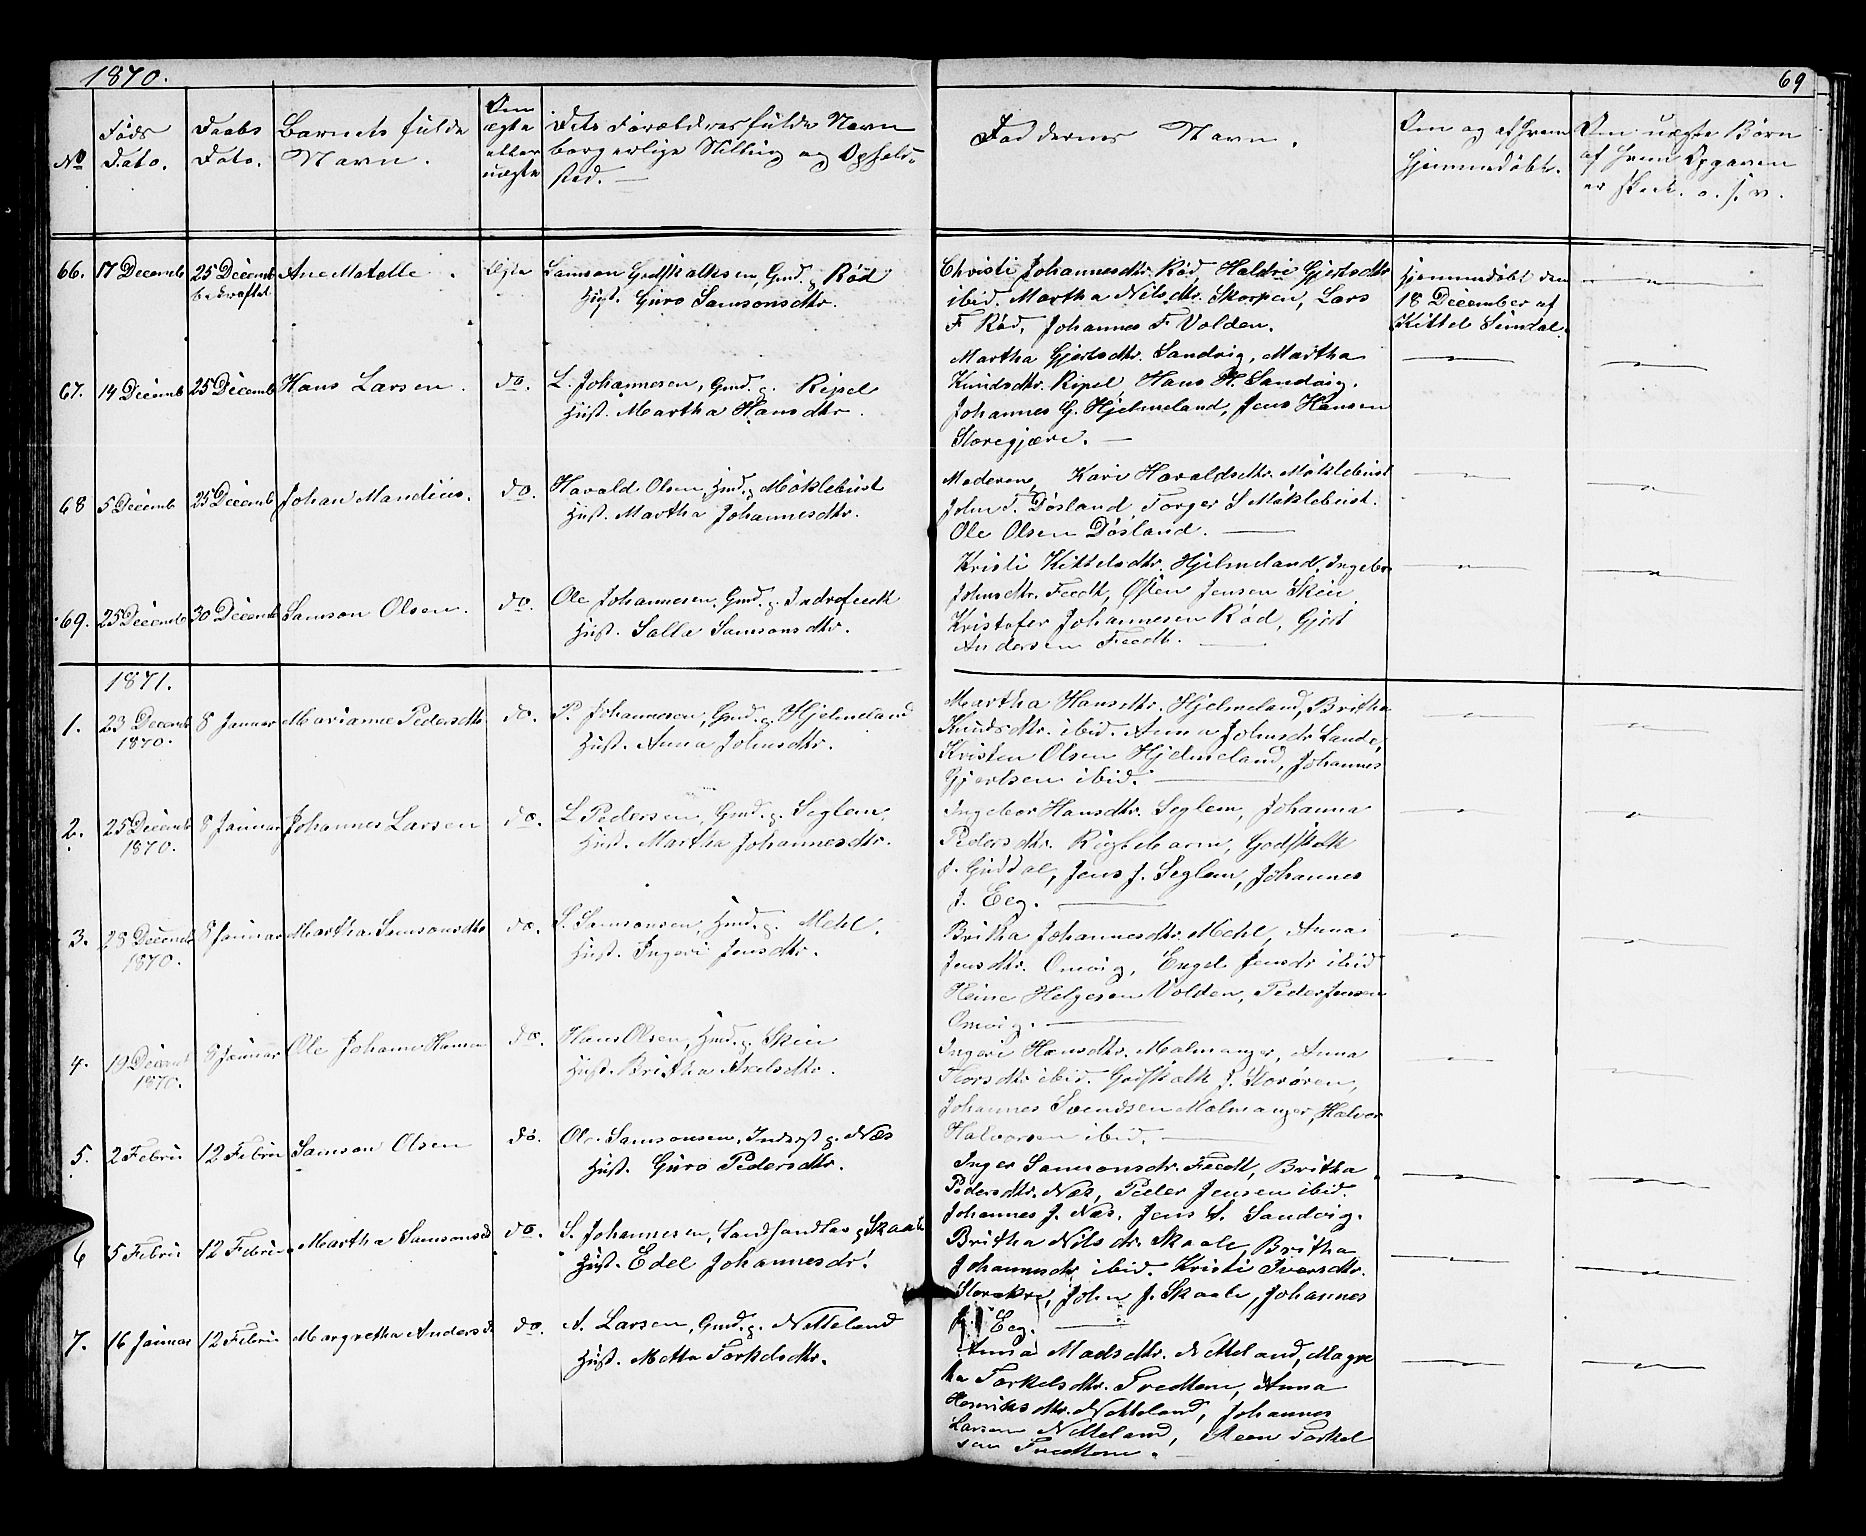 1870.
69
No
Føds Dato.
Daabs Dato.
Barnets fulde Navn.
Om ægte eller uægte
Dets Forældres fulde Navn borgerlige Stilling og Opholdssted.
Faddernes Navn.
Om og af hvem hjemmedøbt.
Om uægte Børn af hvem Opgaven er skeet. o. s. v.
66. 17 Decemb 25 Decemb Ane Matelle. Ægte Samson Godskalksen, Gmd. g. Rød
bekræftet Hust. Guro Samsonsdtr.
Christi Johannesdtr. Rød, Haldri Gjertsdtr
ibid. Martha Nilsdtr. Skorpen, Lars
F Rød, Johannes F Volden.
hjemmedøbt den
18 December af
Kittel Sundal.
67. 14 Decemb 25 Decemb Hans Larsen. do. L. Johannesen, Gmd. g. Ripel
Hust. Martha Hansdtr.
Martha Gjertsdtr. Sandvig, Martha
Knudsdtr. Ripel, Hans H. Sandvig.
Johannes G. Hjelmeland, Jens Hansen
Storegjære.
68 5 Decemb 25 Decemb Johan Mandius. do. Havald Olsen, Hmd. g. Møklebust
Hust. Martha Johannesdtr.
Moderen, Kari Haraldsdtr. Møklebust
John T. Døsland, Torger S Møklebust.
Ole Olsen Døsland.
69. 25 Decemb 30 Decemb Samson Olsen. do. Ole Johannesen, Gmd. g. Indrefeedt
Hust. Salla Samsonsdtr.
Kristi Kittelsdtr. Hjelmeland, Ingebor
Johnsdtr. Feedt, Østen Jensen Skeie
Kristofer Johannesen Rød, Gjert
Andersen Feedt.
1871.
1. 23 Decemb 8 Januar Marianne Pedersdtr do. P. Johannesen, Gmd. g. Hjelmeland
1870. Hust. Anna Johnsdtr.
Martha Hansdtr. Hjelmeland, Britha
Knudsdtr. ibid. Anna Johnsdr Lande,
Kristen Olsen Hjelmeland, Johannes
Gjertsen ibid.
2. 25 Decemb 8 Januar Johannes Larsen do. L Pedersen, Gmd. g. Seglem,
1870. Hust. Martha Johannesdtr.
Ingebor Hansdtr. Seglem, Johanna
Pedersdtr. Godskalk
Guddal, Jens J. Seglem, Johannes
J. Eeg.
3. 28 Decemb 8 Januar Martha Samsonsdtr do. S. Samsonsen, Hmd. g. Mehl.
1870. Hust. Ingeri Jensdtr.
Britha Johannesdtr. Mehl, Anna
Jensdtr. Omvig, Engel Jensdr ibid
Heine Helgesen Volden, Peder Jensen
Omvig.
4. 19 Decemb 8 Januar Ole Johan Hansen do. Hans Olsen, Hmd. g. Skeie
1870. Hust. Britha Axelsdtr.
Ingeri Hansdtr. Malmanger, Anna
Torsdtr ibid. Godskalk J. Storøren,
Johannes Svendsen Malmanger, Halvor
Halvorsen ibid.
5. 2 Febru 12 Febru Samson Olsen do. Ole Samsonsen, Inderst g. Næs
Hust. Guro Pedersdtr.
Inger Samsonsdr. Feedt, Britha
Pedersdtr. Næs, Peder Jensen ibid.
Johannes J. Næs. Jens S. Sandvig.
6 5 Febru 12 Febru Martha Samsonsd do. S. Johannesen, Landhandler g. Skaale
Hust. Edel Johannesdr.
Britha Nilsdr. Skaale, Britha
Johannesdtr ibid. Kristi Iversdtr.
John J. Skaale, Johannes
J. Eeg.
7. 16 Januar 12 Febru Margretha Andersd do. A. Larsen, Gmd. g. Netteland
Hust. Metta Torkelsdtr.
Anna Madsdtr. Netteland, Magre
tha Torkelsdtr. Tvedten, Anna
Henriksdtr. Netteland, Johannes
Larsen Netteland, Torkel
sen Tvedten.